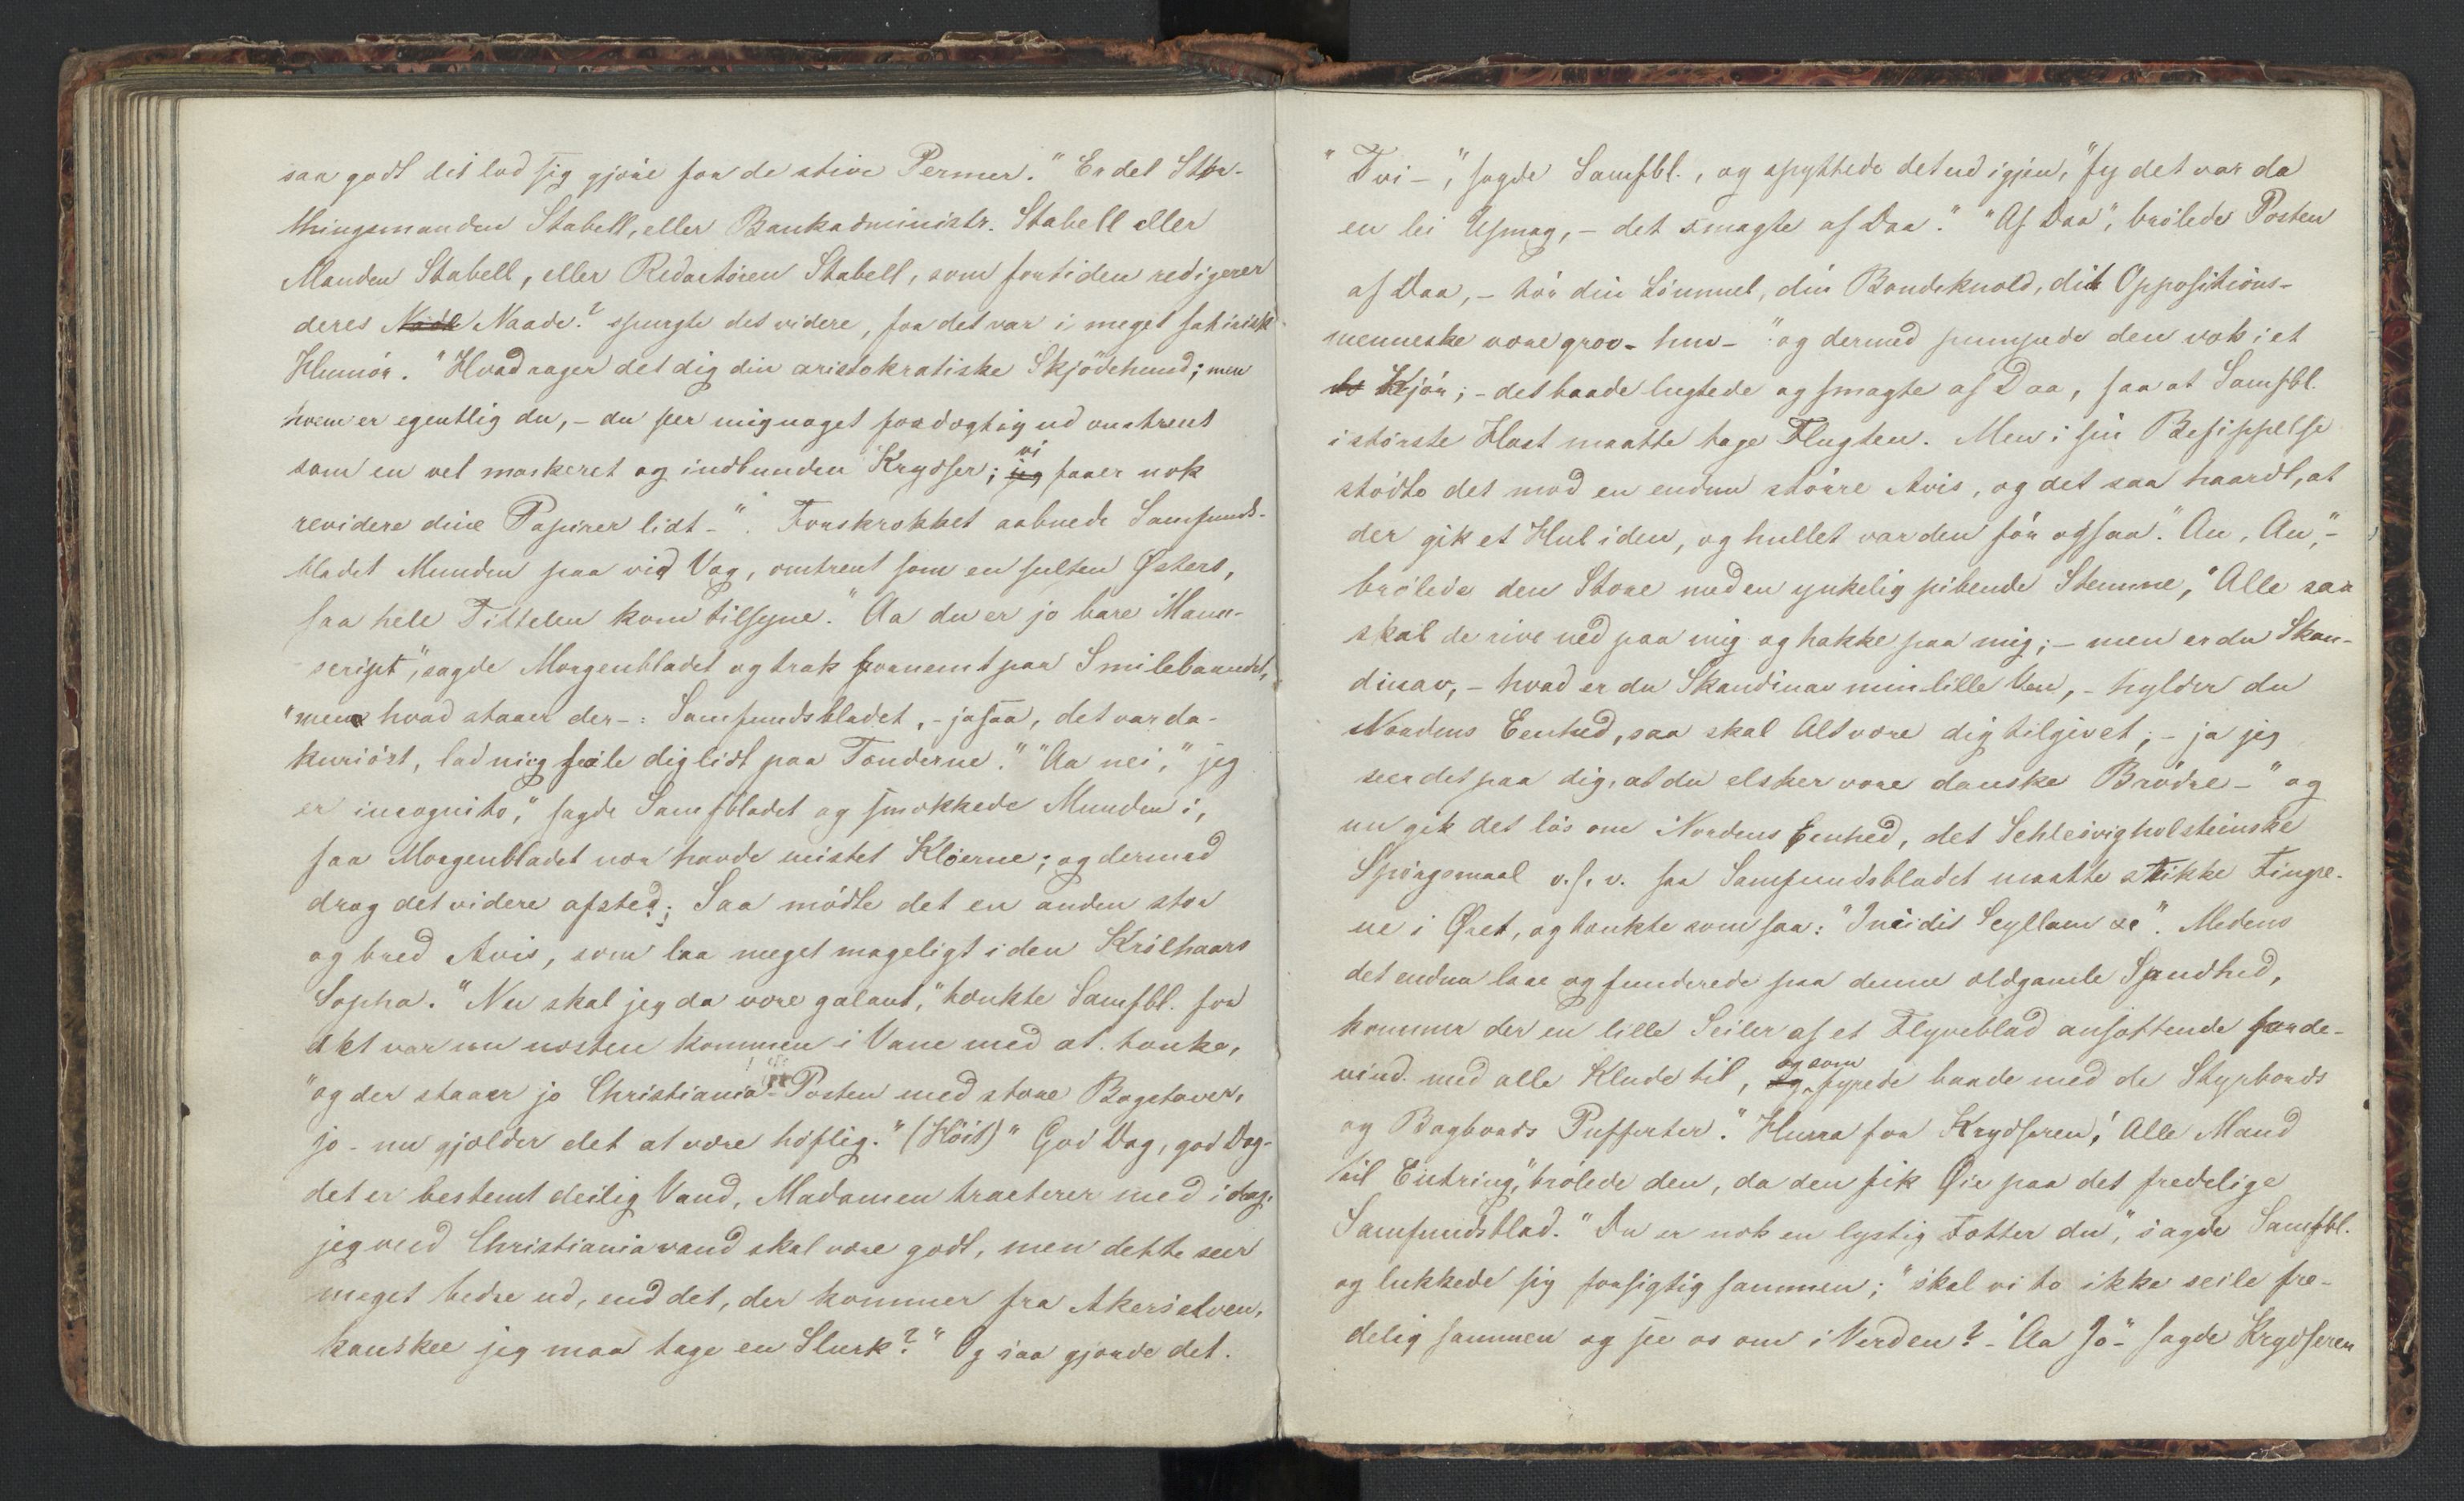 saa godt det lod sig gjøre for de stive Permer." "Er det Stor-
thingsmanden Stabell, eller Bankadministr. Stabell eller
Manden Stabell, eller Redactøren Stabell, som fortiden redigerer
deres Naade?" spurgte det videre, for det var i meget satirisk
Humør. "Hvad rager det dig din aristokratiske Skjødehund; men
hvem er egentlig du, - du seer mig noget fordægtig ud omtrent
som en vel maskeret og indbunden Krydser; vi faaer nok
revidere dine Papirer lidt -". Forskrækket aabnede Samfunds-
bladet Munden paa vid Væg, omtrent som en sulten Østers,
saa hele Tittelen kom tilsyne. "Aa du er jo bare Manu-
script", sagde Morgenbladet og trak fornemt paa Smilebaandet,
"men hvad staaer der -: Samfundsbladet, - jasaa, det var da
kuriøst, lad mig føle dig lidt paa Tænderne." "Aa nei," jeg
er incognito," sagde Samfbladet og smækkede Munden i,
saa Morgenbladet nær havde mistet Kløerne; og dermed
drog det videre afsted; Saa mødte det en anden stor
og bred Avis, som laa meget mageligt i den Krølhaars
Sopha. "Nu skal jeg da være galant," tænkte Samfbl. for
det var nu næsten kommen i Vane med at tænke,
"og der staaer jo Christiania-Posten med store Bogstaver,
jo - nu gjælder det at være høflig." (Høit) "God Dag, god Dag -
det er bestemt deilig Vand, Madamen tracterer med idag,
jeg veed Christiania vand skal være godt, men dette seer
meget bedre ud, end det, der kommer fra Akerselven,
kanskee jeg maa tage en Slurk?" Og saa gjorde det.
"Tvi -," sagde Samfbl., og spyttede det ud igjen, "fy det var da
en lei Usmag, - det smagte af Daa." "Af Daa", brølede Posten
af Daa, - tør din Lømmel, din Bondeknold, dit Oppositions-
menneske være grov - hva -" og dermed pumpede den væk i et
Kjør; - det baade lugtede og smagte af Daa, saa at Samfbl.
i største Hast maatte tage Flugten. Men i sin Befippelse
stødte det mod en endnu større Avis, og det saa haardt, at
der gik et Hul i den, og hullet var den før ogsaa. "Au, Au," -
brølede den Store med en ynkelig pibende Stemme, "Alle saa
skal de rive ned paa mig og hakke paa mig; - men er du Skan-
dinav, - hvad er du Skandinav min lille Ven, - hylder du
Nordens Eenhed, saa skal Alt være dig tilgivet; - ja jeg
seer det paa dig, at du elsker vore danske Brødre -" og
nu gik det løs om Nordens Eenhed, det Schlesvigholsteinske
Spørgsmaal o.s.v. saa Samfundsbladet maatte stikke Fingre-
ne i Øret, og tænkte som saa: "Incidit Scyllam &c". Medens
det endnu laae og funderede paa denne oldgamle Sandhed,
kommer der en lille Seiler af et Flyveblad ansættende forde-
vind med alle Klude til, og som fyrede baade med de Styrbords
og Bagbords Pufferter. "Hurra for Krydseren! Alle Mand
til Entring," brølede den, da den fik Øie paa det fredelige
Samfundsblad. "Du er nok en lystig Fætter du," sagde Samfbl.
og lukkede sig forsigtig sammen; "skal vi to ikke seile fre-
delig sammen og see os om i Verden? - "Aa Jo" - sagde Krydseren